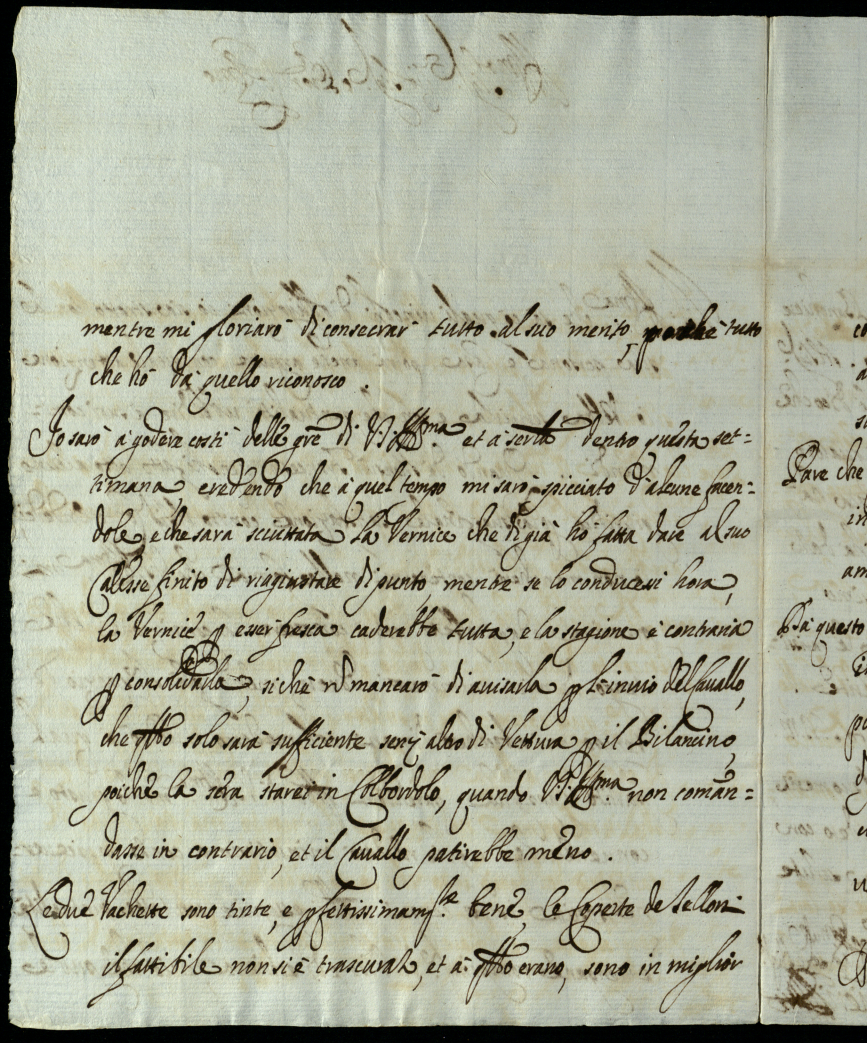 mentre mi gloriarò di consecrar tutto al suo merito, perche tutto
che hò da quello riconosco.
Io sarò à godere costì delle gr̃e di V.S. Ill.ma et à servirla dentro questa set=
timana, credendo che à quel tempo mi sarò spicciato d'alcune facen=
dole, e che sarà sciuttata la Vernice che di già hò fatta dare al suo
Calesse finito di riggiustare di punto, mentre se lo conducessi hora,
la Vernice p esser fresca caderebbe tutta, e la stagione è contraria
p consolidarla, si chè nõ mancarò di avisarla p l'invio del Cavallo,
che qto solo sarà sufficiente senz'altro di Vettura p il Bilancino,
poiche la sera starei in Colbordolo, quando V.S. Ill.ma non comãn=
dasse in contrario, et il Cavallo patirebbe meno.
Le due Vachette sono tinte, e pfettissimam.te bene, le Coperte de Selloni
il fattibile non si è trascurato, et à qto erano, sono in miglior
Pare che
in
am
Da questo